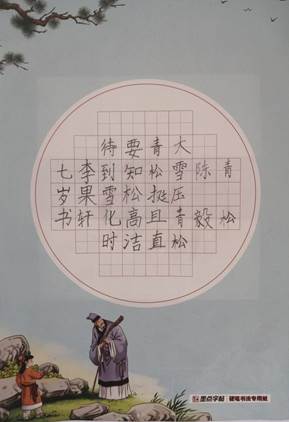 青松
陈毅
大雪压青松
青松挺且直
要知松高洁
待到雪化时
李果轩
七岁书
墨点字帖 硬笔书法专用纸